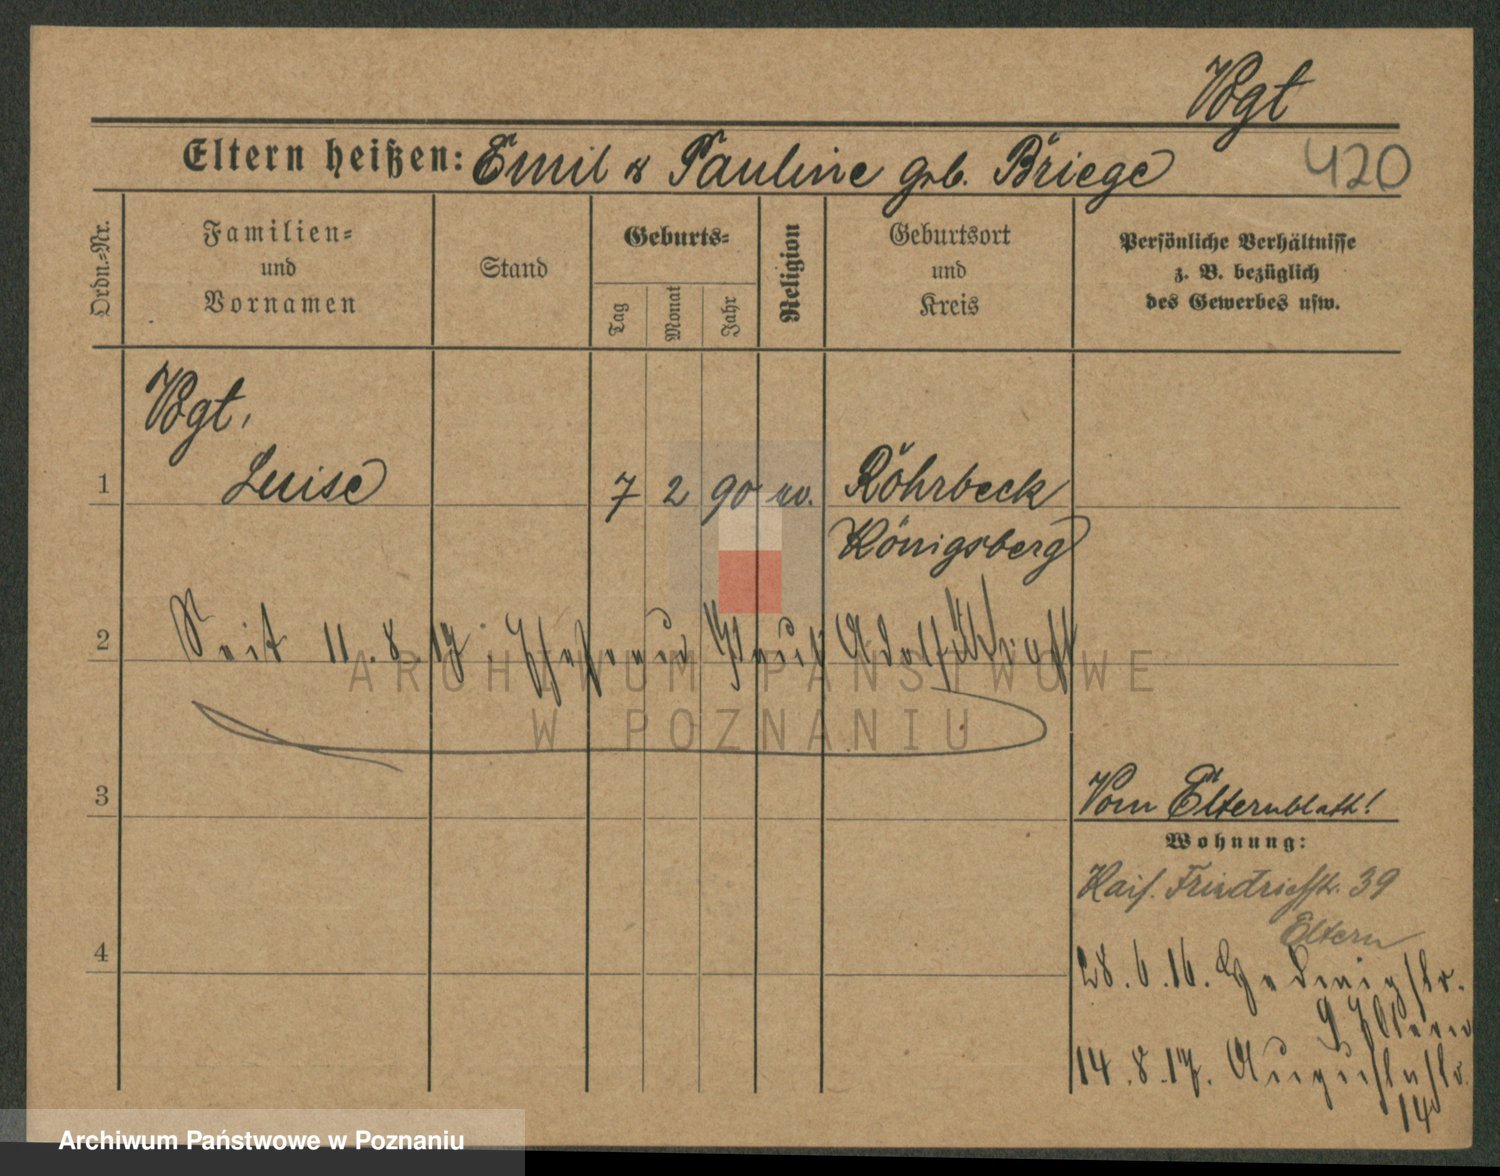 Vogt
Eltern heißen: Emil & Pauline geb. Briege
420
Ordn.-Nr.
Familien-
und
Vornamen
Stand
Geburts-
Tag
Monat
Jahr
Religion
Geburtsort
und
Kreis
Persönliche Verhältnisse
z. B. bezüglich
des Gewerbes usw.
Vogt,
1 Luise 7 2 90 ev. Röhrbeck
Königsberg
2 Seit 11.8.17. Ehefrau Paul Adolf
ARCHIWUM PAŃSTWOWE
W POZNANIU
3
Vom Elternblatt!
Wohnung:
Kais. Friedrichstr. 39
Eltern
4
28.6.16. Hedwigstr.
9 Eltern
14.8.17. Augustastr.
14
Archiwum Państwowe w Poznaniu